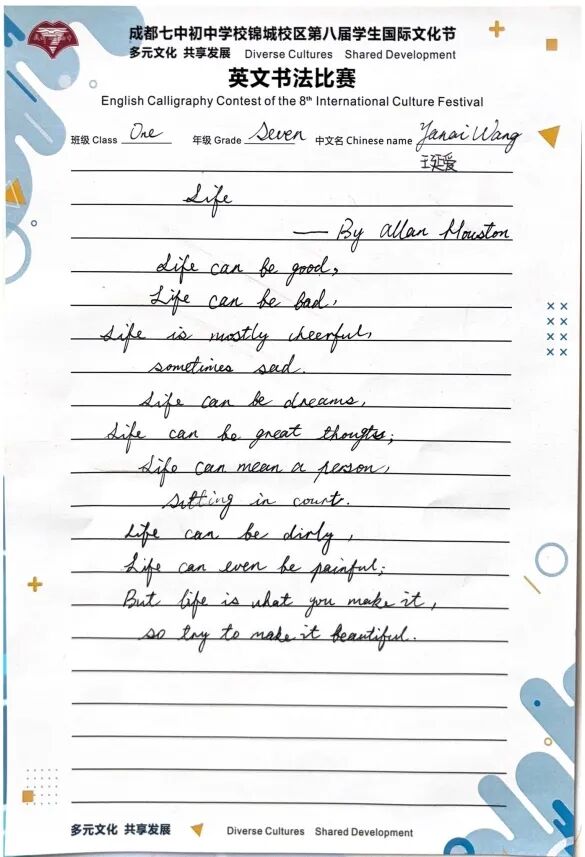 成都七中初中学校锦城校区第八届学生国际文化节
多元文化 共享发展 Diverse Cultures Shared Development
英文书法比赛
English Calligraphy Contest of the 8th International Culture Festival
班级 Class One 年级 Grade Seven 中文名 Chinese name Yanai Wang
王延爱
Life
— By Allan Houston
Life can be good,
Life can be bad,
Life is mostly cheerful,
sometimes sad.
Life can be dreams,
Life can be great thougts;
Life can mean a person,
sitting in court.
Life can be dirly,
Life can even be painful;
But life is what you make it,
so try to make it beautiful.
多元文化 共享发展 Diverse Cultures Shared Development